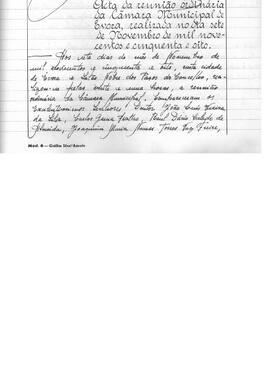 Acta da reunião ordinária
da Câmara Municipal de
Évora, realizada no dia sete
de Novembro de mil nove-
centos e cinquenta e oito.
Aos sete dias do mês de Novembro de
mil novecentos e cinquenta e oito, nesta cidade
de Évora e Salão Nobre dos Paços do Concelho, rea-
lizou-se pelas vinte e uma horas, a reunião
ordinária da Câmara Municipal. Compareceram os
Excelentíssimos Senhores Doutor João Luís
da Silva, Carlos
Almeida, Joaquim Maria Torres Vaz Freire,
Mod. 6